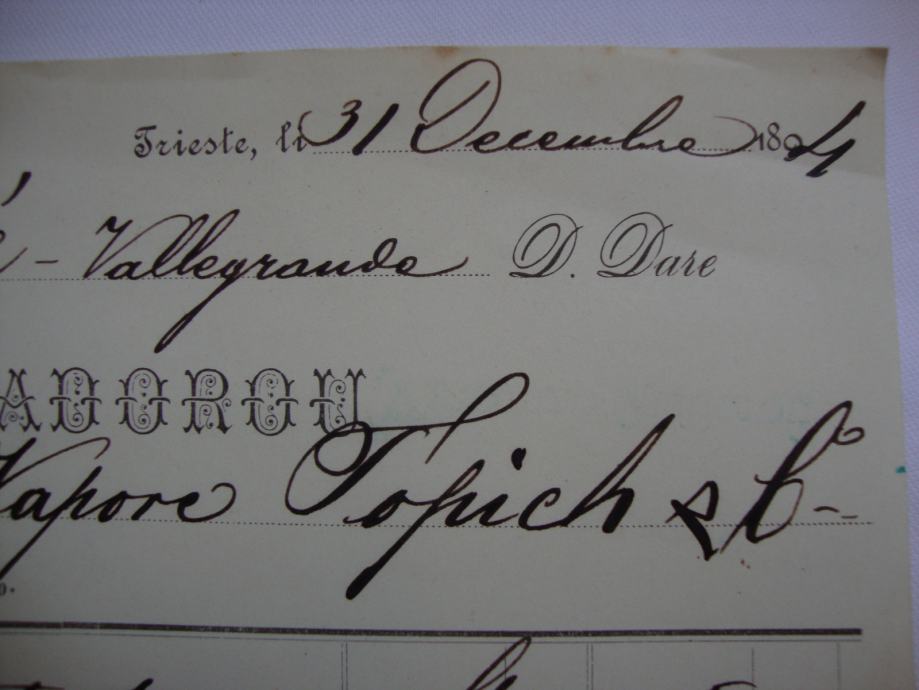 Trieste, li 31 Decembre 1894
- Vallegrande D. Dare
ADOROU
Vapore Topich & Co-